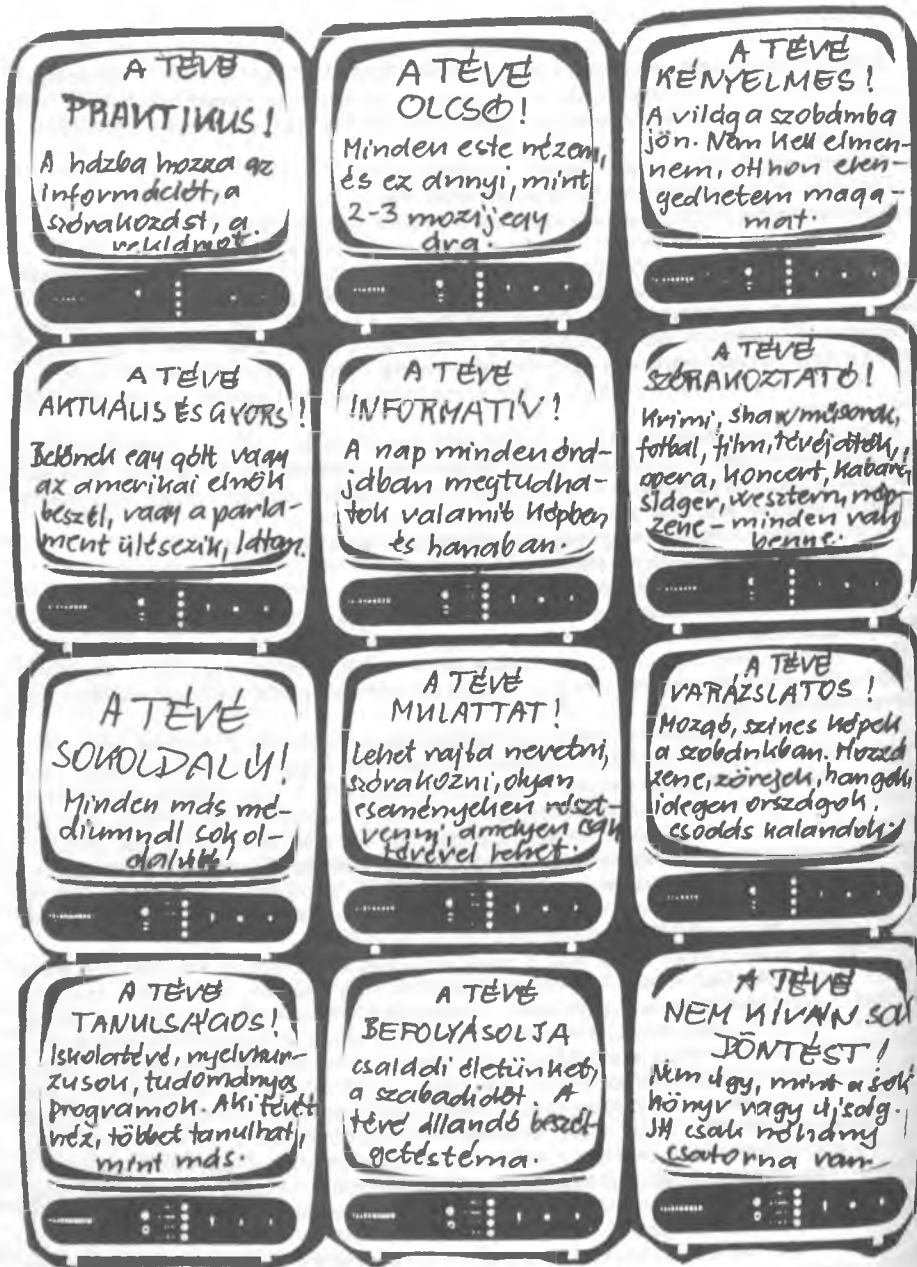 A TÉVÉ
PRAKTIKUS!
A házba hozza az
információt, a
szórakozást, a
reklámot.
A TÉVÉ
OLCSÓ!
Minden este nézem,
és ez annyi, mint
2-3 mozijegy
ára.
A TÉVÉ
KÉNYELMES!
A világ a szobámba
jön. Nem kell elmen-
nem, otthon elen-
gedhetem maga-
mat.
A TÉVÉ
AKTUÁLIS ÉS GYORS!
Belőnek egy gólt vagy
az amerikai elnök
beszél, vagy a parla-
ment ülésezik, látom.
A TÉVÉ
INFORMATÍV!
A nap minden órá-
jában megtudha-
tok valamit képben
és hangban.
A TÉVÉ
SZÓRAKOZTATÓ!
Krimi, showműsorok,
fotbal, film, tévéjáték,
opera, koncert, kabaré,
sláger, western, nép-
zene - minden van
benne.
A TÉVÉ
SOKOLDALÚ!
Minden más mé-
diumnál sokol-
dalúbb!
A TÉVÉ
MULATTAT!
Lehet rajta nevetni,
szórakozni, olyan
eseményeken részt-
venni, amelyen csak
tévével lehet.
A TÉVÉ
VARÁZSLATOS!
Mozgó, színes képek
a szobánkban. Hozzá
zene, zörejek, hangok,
idegen országok,
csodás kalandok.
A TÉVÉ
TANULSÁGOS!
Iskolatévé, nyelvkur-
zusok, tudományos
programok. Aki tévét
néz, többet tanulhat,
mint más.
A TÉVÉ
BEFOLYÁSOLJA
családi életünket,
a szabadidőt. A
tévé állandó beszél-
getéstéma.
A TÉVÉ
NEM KÍVÁN SOK
DÖNTÉST!
Nem úgy, mint a sok
könyv vagy újság.
Itt csak néhány
csatorna van.